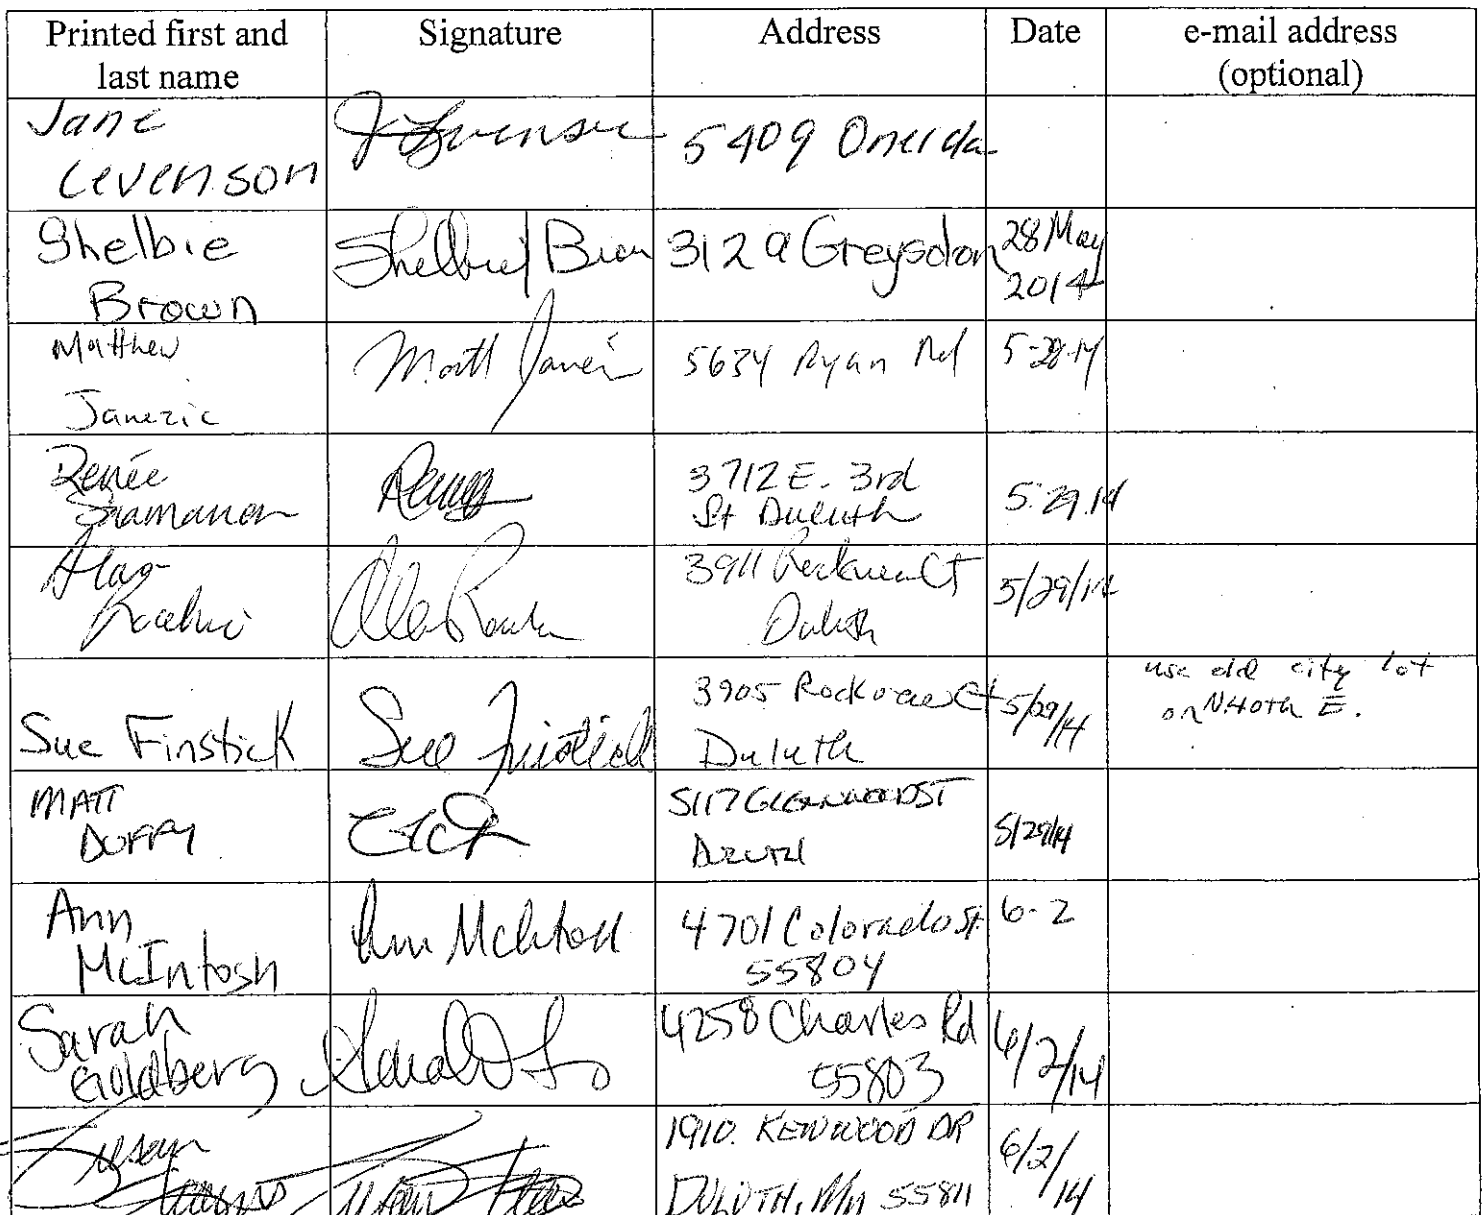 Printed first and last name | Signature | Address | Date | e-mail address (optional)
Jane Levenson | 5409 Oneida
Shelbie Brown | Shelbie Brown | 312 a Greysolon | 28 May 2014
Matthew Janezic | Matt Janezic | 5634 Ryan Rd | 5-28-14
Renée | 3712 E. 3rd St Duluth | 5.29.14
Alan | 3911 Ct Duluth | 5/29/14
Sue Finstick | Sue Finstick | 3905 Rockview Ct Duluth | 5/29/14 | use old city lot on N40th E.
MATT DUFFY | 5117 GLENWOOD ST Duluth | 5/29/14
Ann McIntosh | Ann McIntosh | 4701 Colorado St. 55804 | 6-2
Sarah Goldberg | Sarah | 4258 Charles Rd 55803 | 6/2/14
Susan | Susan | 1910. KENWOOD DR DULUTH, MN 55811 | 6/2/14